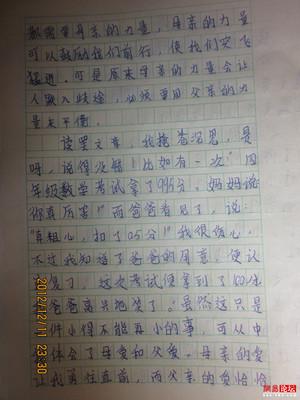 都需要母亲的力量，母亲的力量
可以鼓励我们前行，使我们突飞
猛进。可是原来母亲的力量会让
人踏入歧途，必须要用父亲的力
量来平衡。
读罢文章，我掩卷沉思，是
呀，说得没错！比如有一次，四
年级数学考试拿了99.5分。妈妈说：
“你真厉害！”而爸爸看见了，说：
“真粗心，扣了0.5分！”我很伤心，
不过我知道了爸爸的用意，便认
复习。这次考试便拿到了100分
爸爸高兴地笑了。虽然这只是
件小得不能再小的事，可从中
体会了母爱和父爱。母亲的爱
让我勇往直前，而父亲的爱恰恰
2012/12/11 23:30
网易论坛